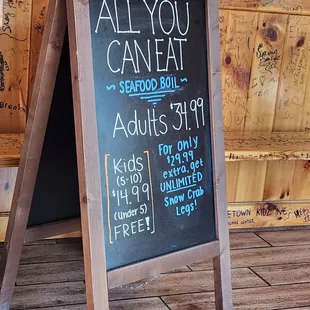 ALL YOU
CAN EAT
~ SEAFOOD BOIL ~
Adults $34.99
Kids
(5-10)
$14.99
(Under 5)
FREE!
For only
$29.99
extra, get
UNLIMITED
Snow Crab
Legs!